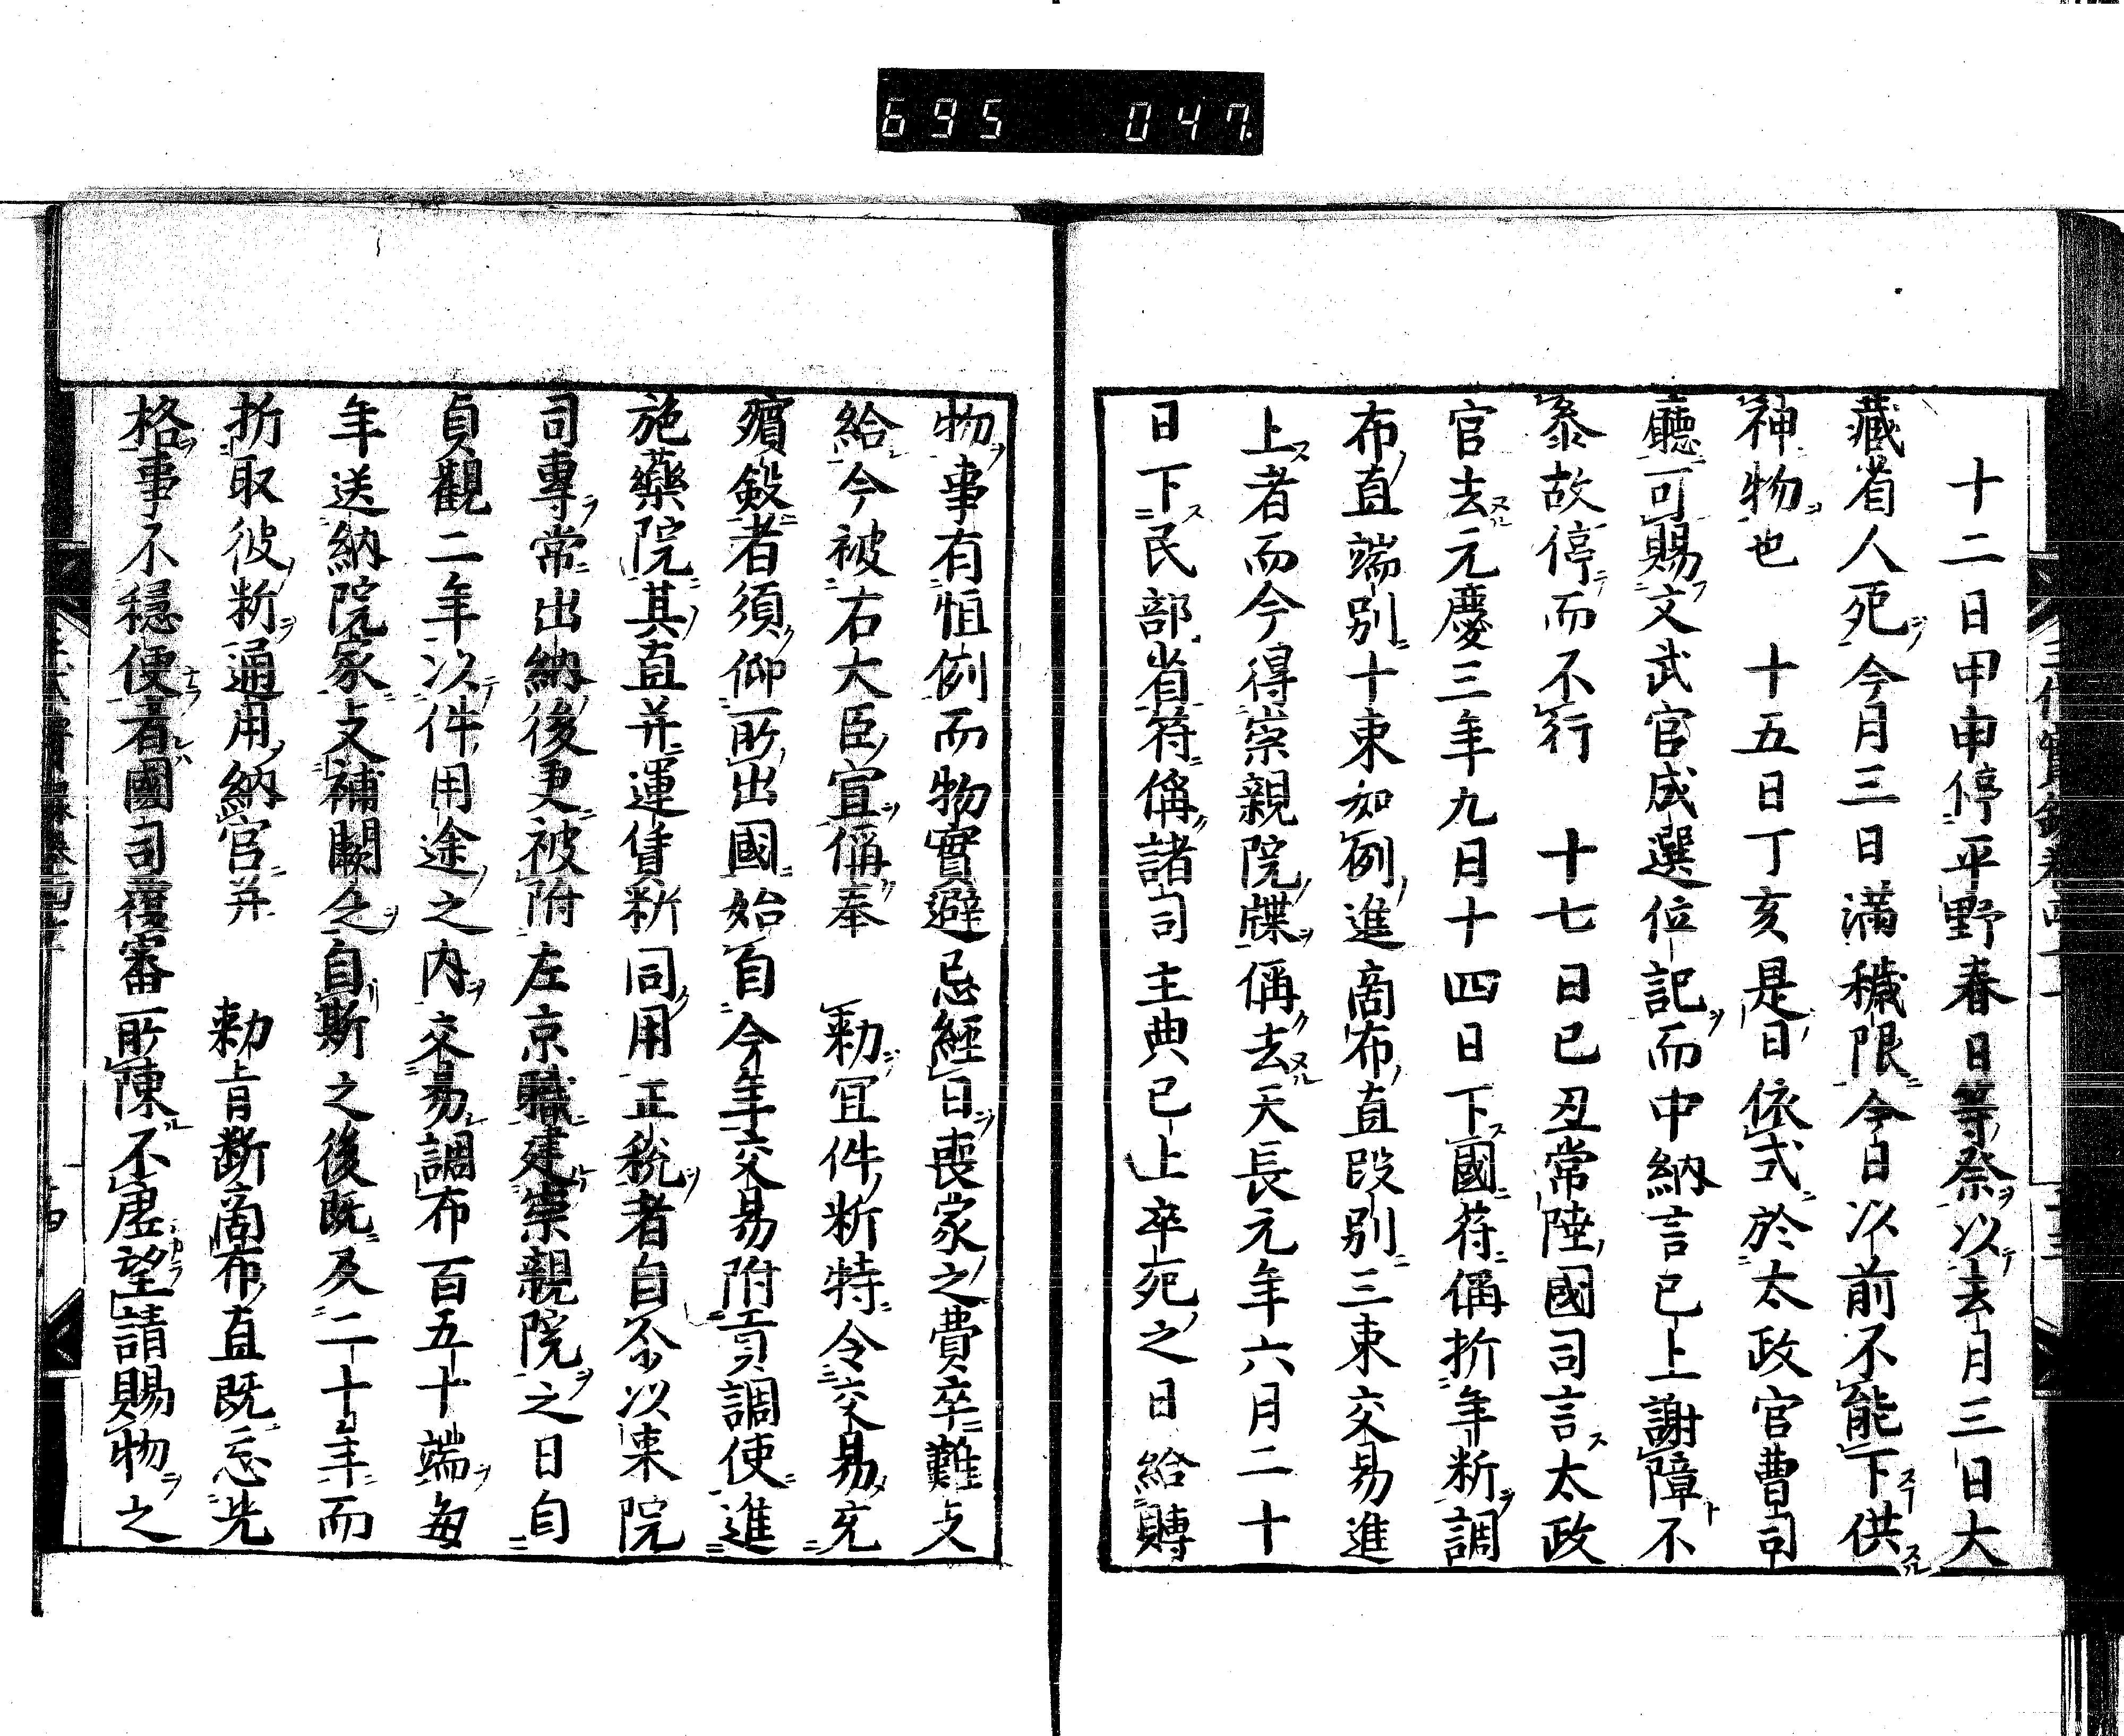 695 047
十二日甲申停平野春日等祭以去月三日大
藏省人死今月三日滿穢限今日以前不能下供
神物也　十五日丁亥是日依式於太政官曹司
廳可賜文武官成選位記而中納言已上謝障不
參故停而不行　十七日已丑常陸國司言太政
官去元慶三年九月十四日下國符偁折年新調
布直端別十束如例進商布直段別三束交易進
上者而今得崇親院牒偁去天長元年六月二十
日下民部省符偁諸司主典已上卒死之日給賻
物事有恒例而物實避忌經日喪家之費卒難支
給今被右大臣宣偁奉　勅冝件新特令交易充
殯斂者須仰所出國始自今年交易附貢調使進
施藥院其直并運賃新同用正税者自尒以來院
司專常出納後更被附左京職建崇親院之日自
貞觀二年以件用途之内交易調布百五十端每
年送納院家支補闕乏自斯之後既及二十年而
折取彼新通用納官并　勅旨新商布直既忘先
格事不穩便者國司覆審所陳不虚望請賜物之